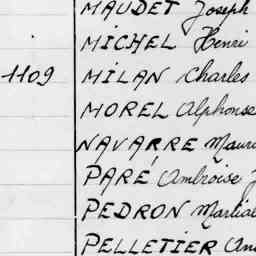 MAUDET Joseph
MICHEL Henri
1109 MILAN Charles
MOREL Alphonse
NAVARRE Mauri
PARÉ Ambroise J
PEDRON Martial
PELLETIER An